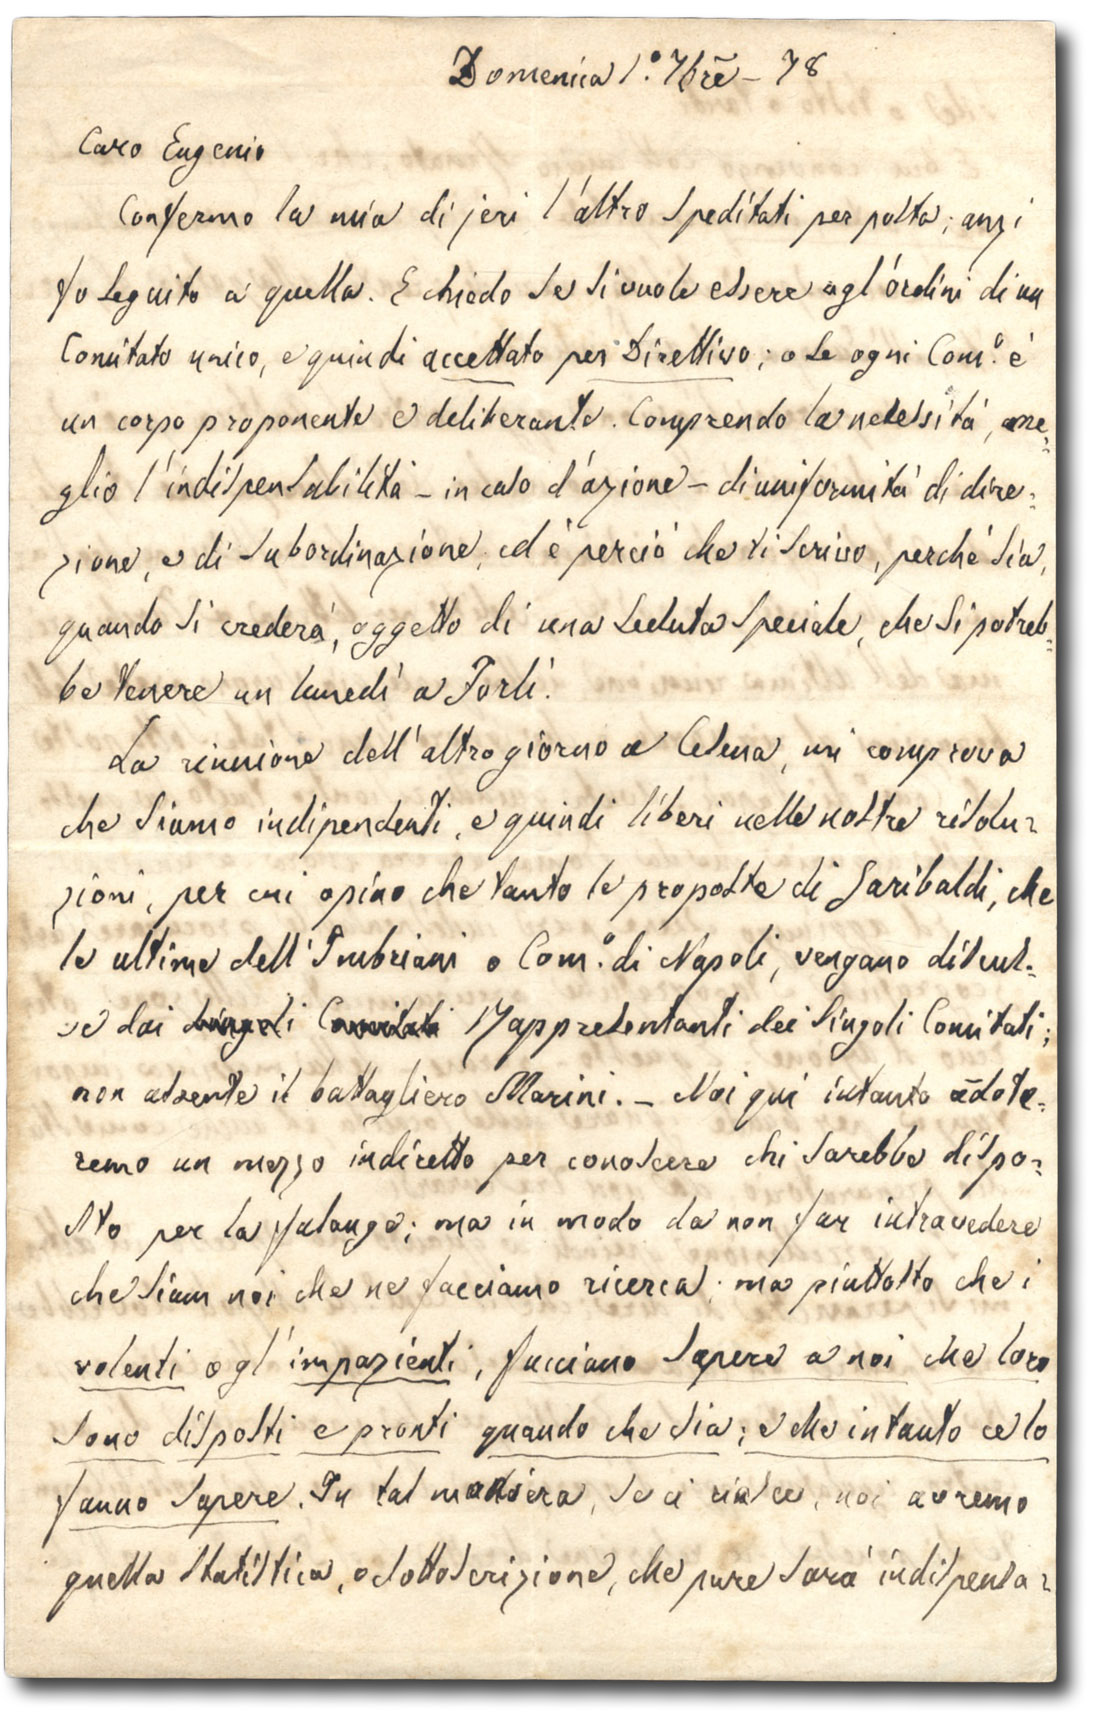 Domenica 1.° 7bre – 78
Caro Eugenio
Confermo la mia di jeri l'altro speditati per posta; anzi
fo seguito a quella. E chiedo se si vuole essere agl'ordini di un
Comitato unico, e quindi accettato per Direttivo; o se ogni Com.° è
un corpo proponente e deliberante. Comprendo la necessità, me=
glio l'indispensabilità – in caso d'azione – di uniformità di dire=
zione, e di subordinazione, ed è perciò che ti scrivo, perché sia,
quando si crederà, oggetto di una seduta speciale, che si potreb=
be tenere un lunedì a Forlì.
La riunione dell'altro giorno a Cesena, mi comprova
che siamo indipendenti, e quindi liberi nelle nostre risolu=
zioni, per cui opino che tanto le proposte di Garibaldi, che
le ultime dell'Imbriani o Com.° di Napoli, vengano discus=
se dai singoli Comitati rappresentanti dei singoli Comitati;
non assente il battagliero Marini. – Noi qui intanto adote=
remo un mezzo indiretto per conoscere chi sarebbe dispo=
sto per la falange; ma in modo da non far intravedere
che siam noi che ne facciamo ricerca; ma piuttosto che i
volenti o gl'impazienti, facciano sapere a noi che loro
sono disposti e pronti quando che sia; e che intanto ce lo
fanno sapere. In tal maniera, se ci riesce, noi avremo
quella statistica, o sottoscrizione, che pure sarà indispensa=